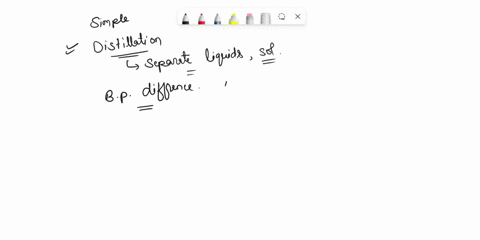 Simple
Distillation
↳ Separate liquids, sol.
B.p. diffrence.